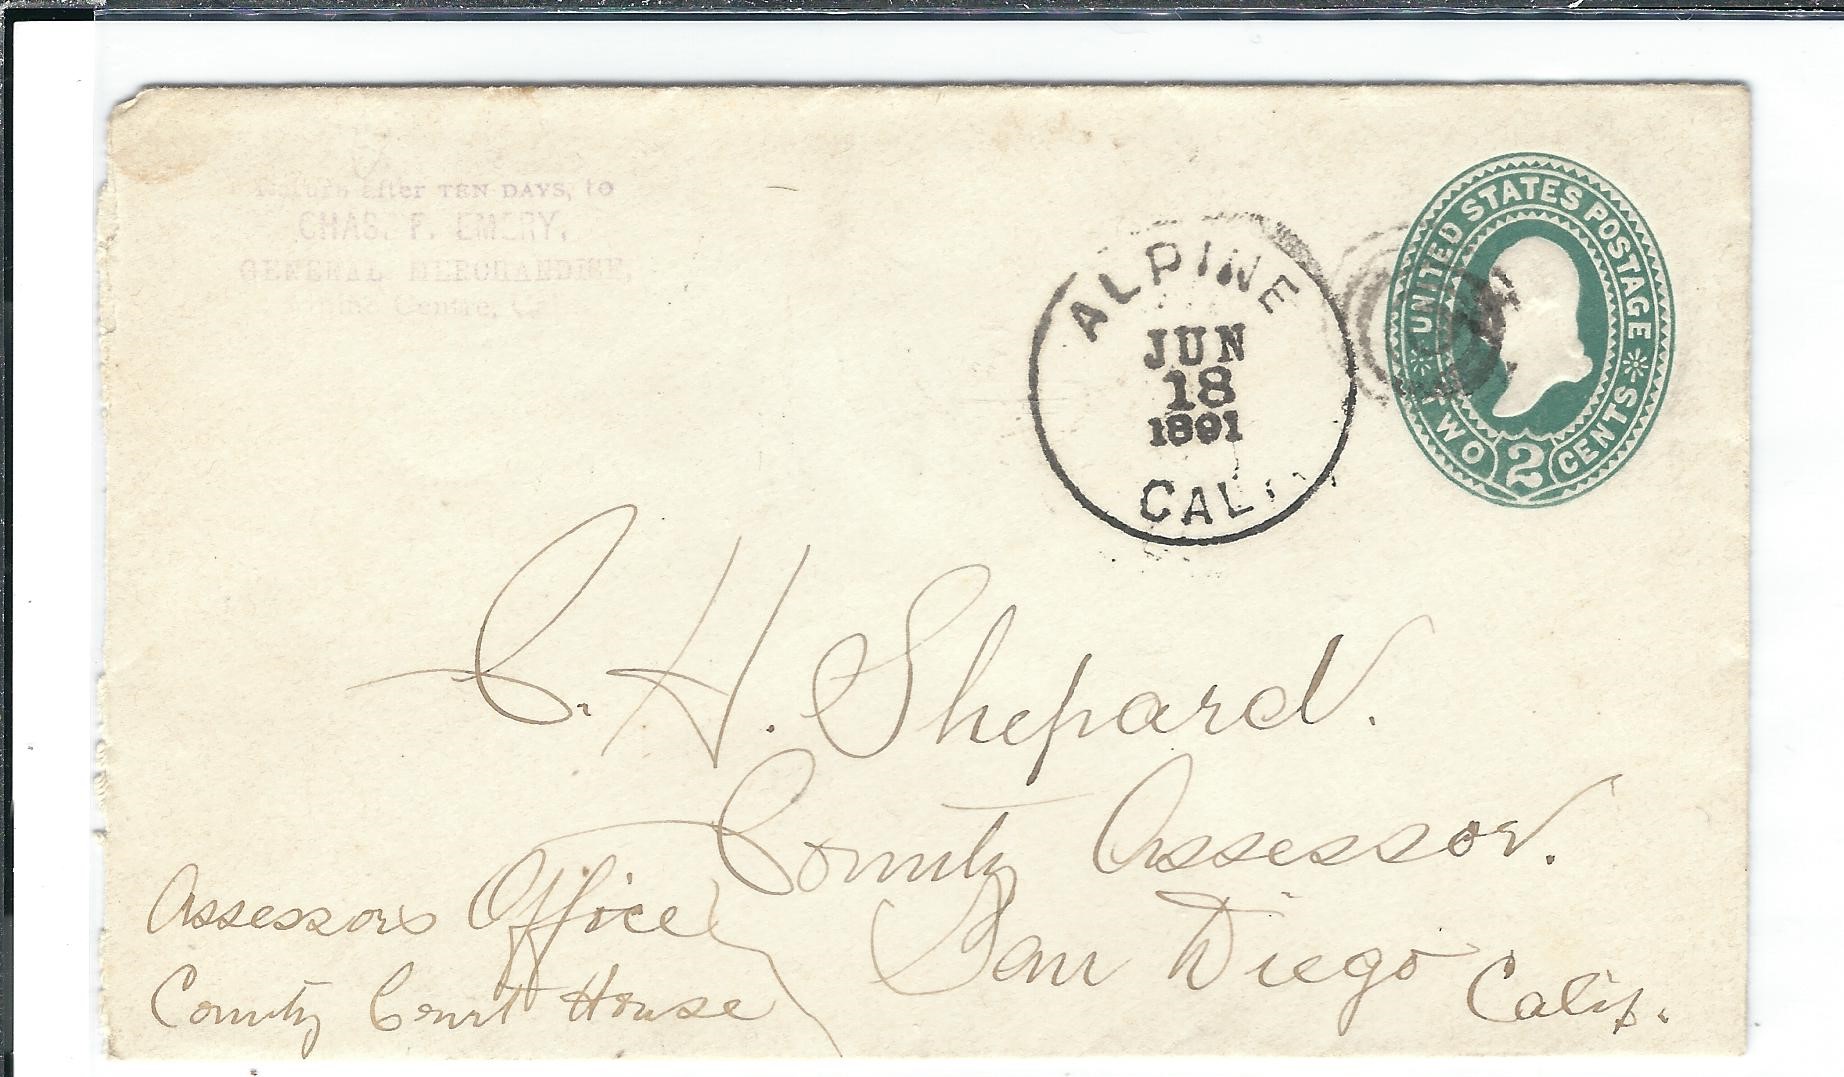 Return after TEN DAYS, to
CHAS. F. EMERY,
GENERAL MERCHANDISE,
Centre,
ALPINE
JUN
18
1891
CAL.
UNITED STATES POSTAGE
TWO 2 CENTS
C. H. Shepard.
County Assessor.
San Diego Calif.
Assessors Office
County Court House